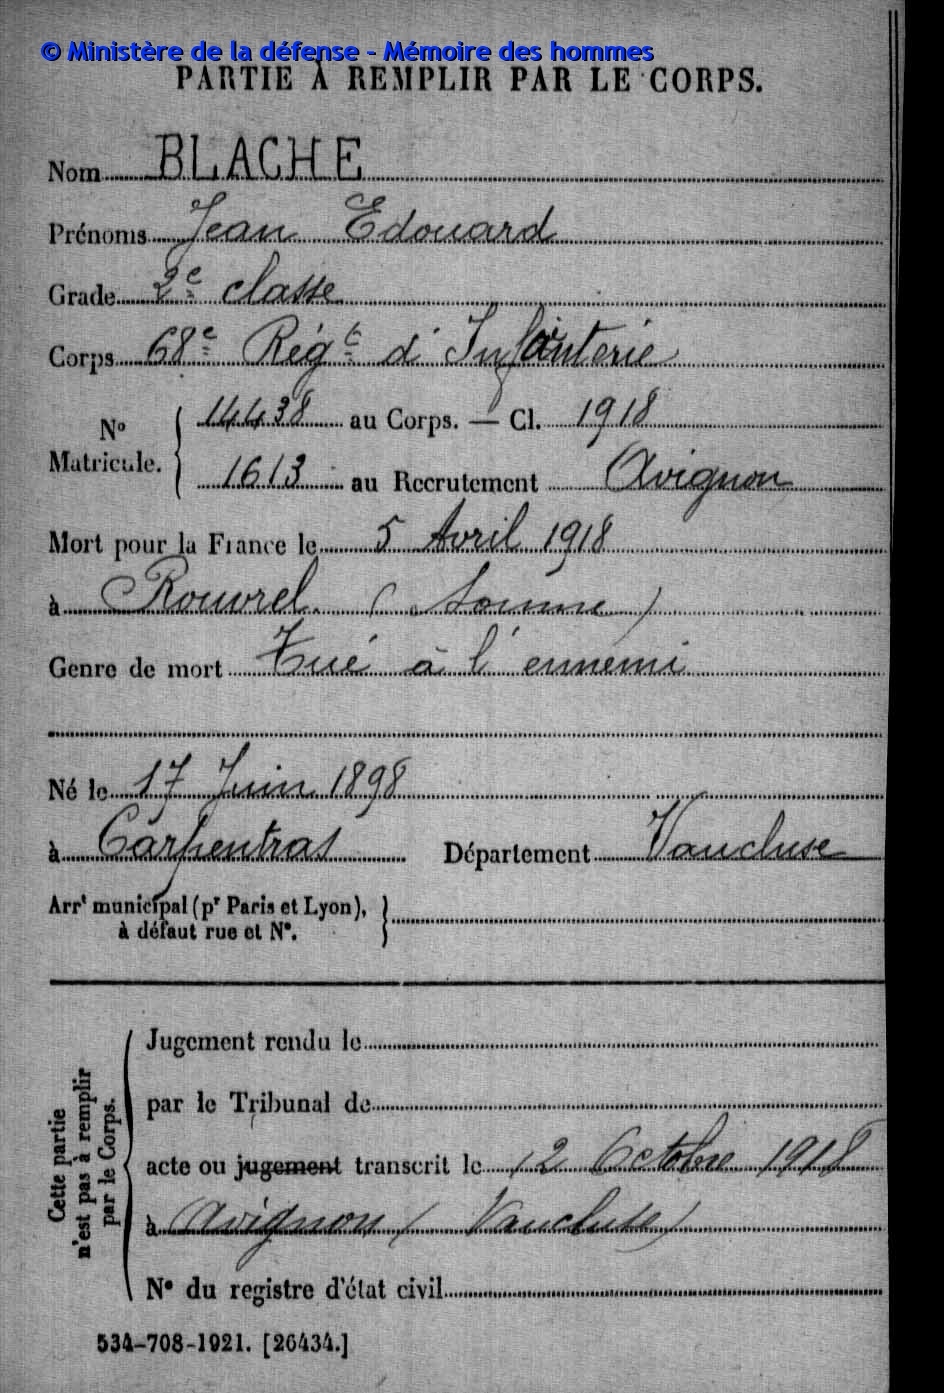 © Ministère de la défense - Mémoire des hommes
PARTIE À REMPLIR PAR LE CORPS.
Nom BLACHE
Prénoms Jean Edouard
Grade 2e classe
Corps 68e Régt d'Infanterie
No Matricule. { 14438 au Corps. — Cl. 1918
1613 au Recrutement Avignon
Mort pour la France le 5 Avril 1918
à Rouvrel (Somme)
Genre de mort Tué à l'ennemi
Né le 17 Juin 1898
à Carpentras Département Vaucluse
Arrt municipal (pr Paris et Lyon),
à défaut rue et No. }
Cette partie
n'est pas à remplir
par le Corps.
Jugement rendu le
par le Tribunal de
acte ou jugement transcrit le 12 Octobre 1918
à Avignon (Vaucluse)
No du registre d'état civil
534-708-1921. [26434.]